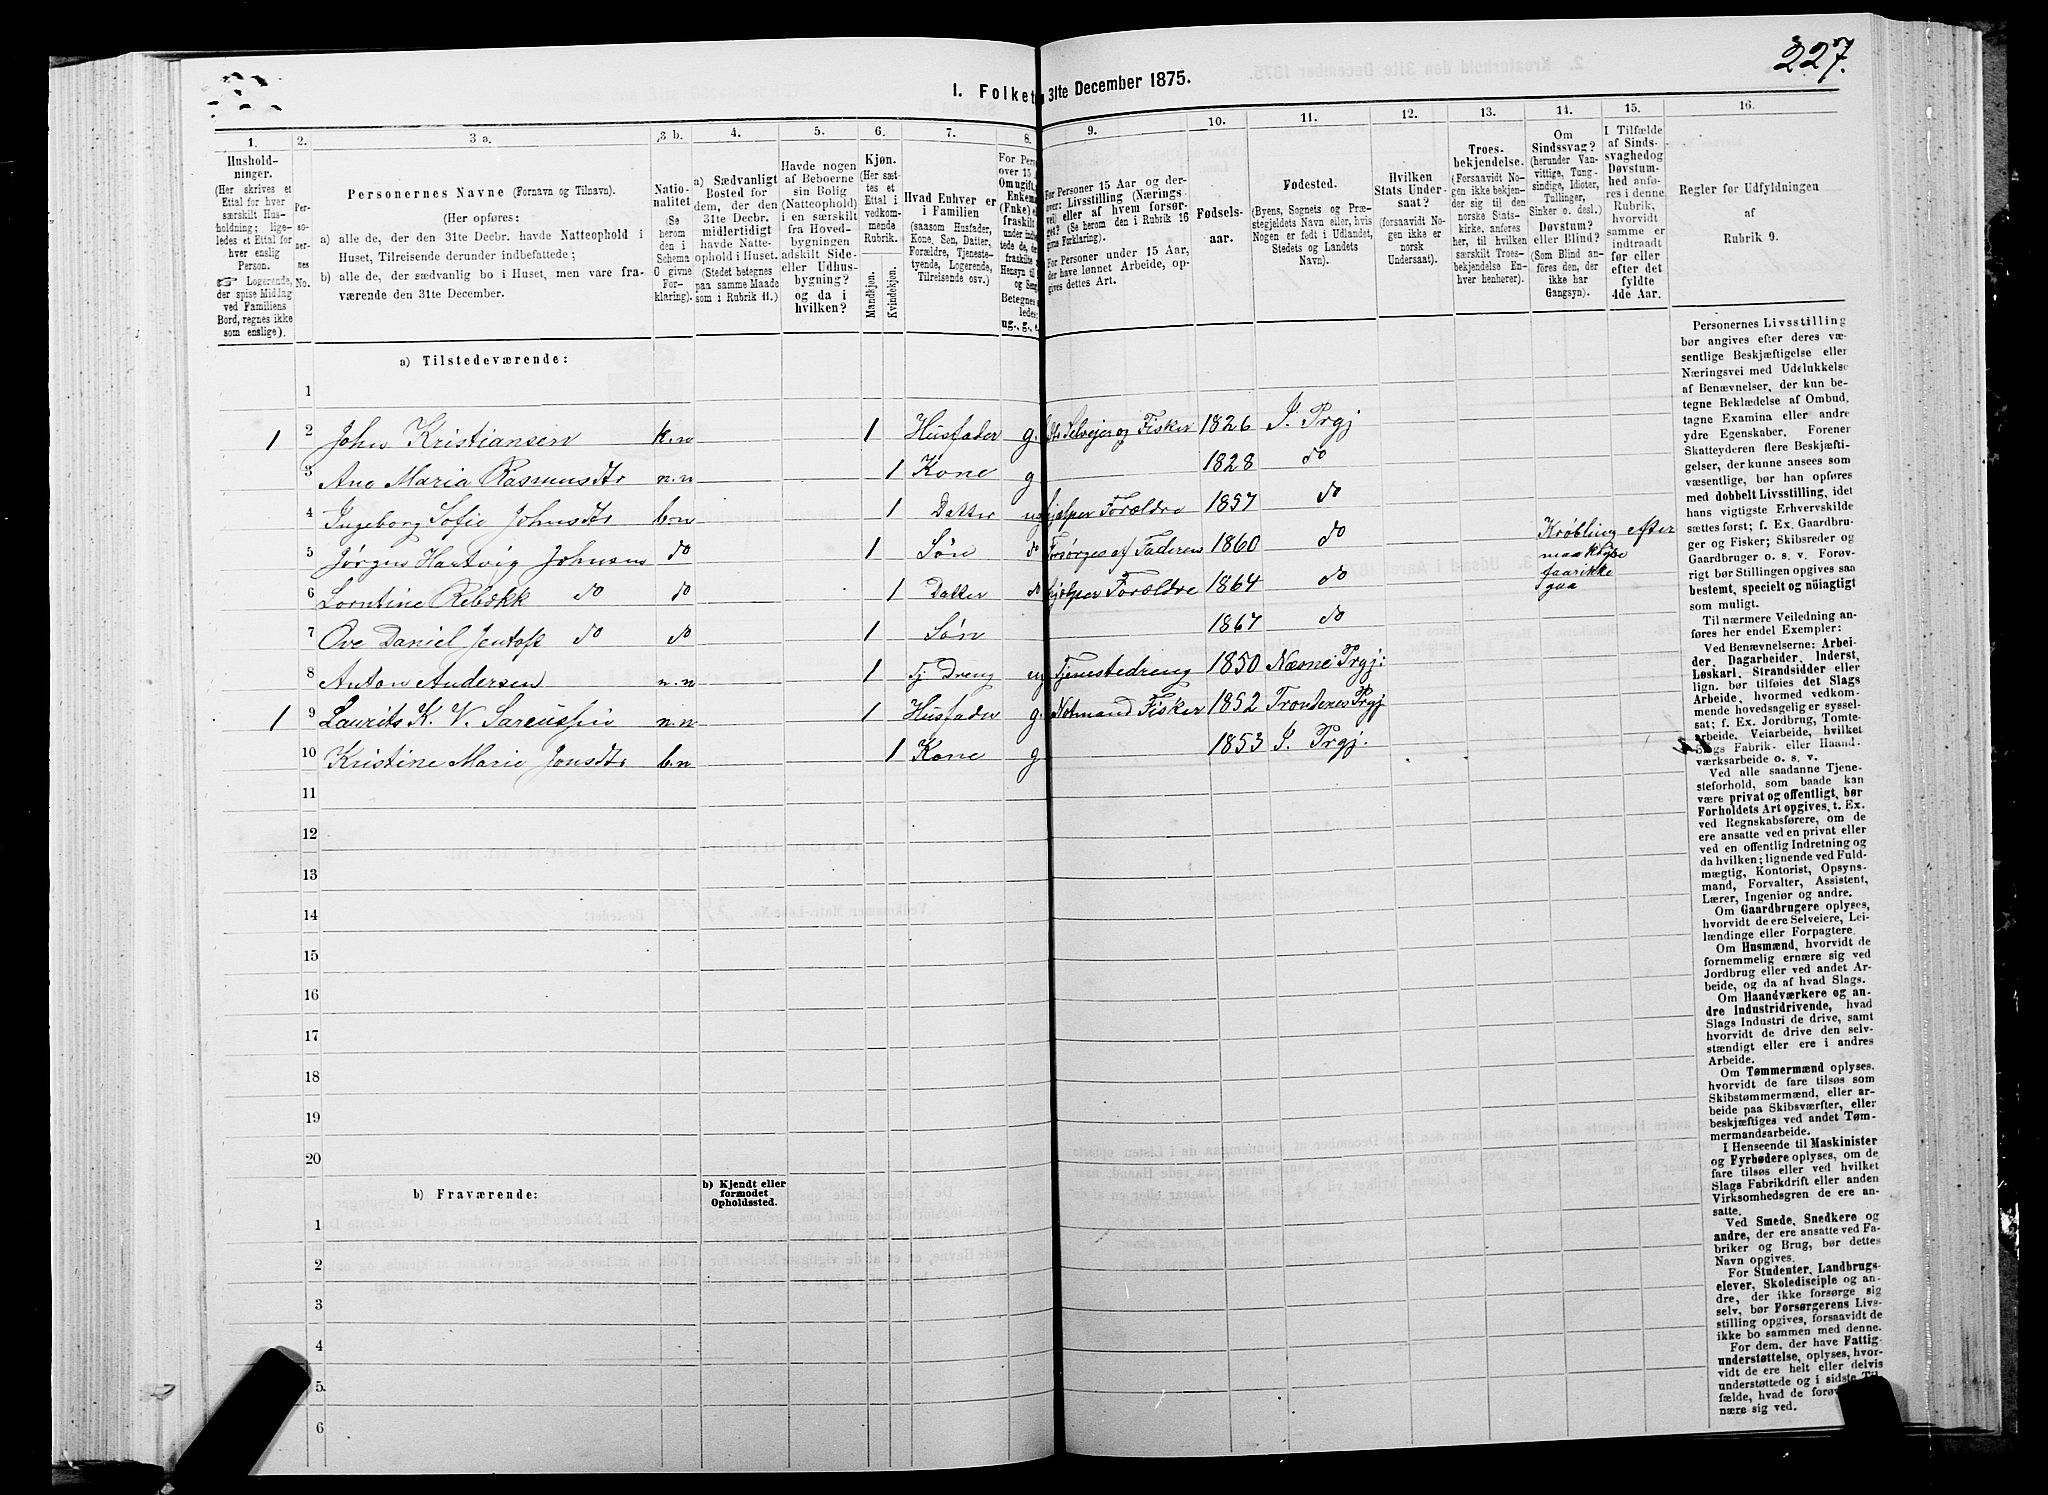 227.
1. Folket 31te December 1875.
1. 2. 3 a. 3 b. 4. 5. 6. 7. 8. 9. 10. 11. 12. 13. 14. 15. 16.
Husholdninger.
(Her skrives et
Ettal for hver
særskilt Husholdning;
ligeledes et Ettal for
hver enslig
Person.
☞ Logerende,
der spise Middag
ved Familiens
Bord, regnes ikke
som enslige).
Personernes
No.
Personernes Navne (Fornavn og Tilnavn).
(Her opføres:
a) alle de, der den 31te Decbr. havde Natteophold i
Huset, Tilreisende derunder indbefattede;
b) alle de, der sædvanlig bo i Huset, men vare fraværende
den 31te December.
Nationalitet
(Se
herom
den i
Schema
G givne
Forklaring).
a) Sædvanligt
Bosted for
dem, der den
31te Decbr.
midlertidigt
havde Natteophold
i Huset.
(Stedet betegnes
paa samme Maade
som i Rubrik 11.)
Havde nogen
af Beboerne
sin Bolig
(Natteophold)
i en særskilt
fra Hovedbygningen
adskilt Side-
eller Udhusbygning?
og da i
hvilken?
Kjøn.
(Her sættes
et
Ettal i
vedkommende
Rubrik.
Mandkjøn.
Kvindekjøn.
Hvad Enhver er
i Familien
(saasom Husfader,
Kone, Søn, Datter,
Forældre, Tjenestetyende,
Logerende,
Tilreisende osv.)
For Perso
over 15 A
Om ugift,
Enkema
(Fnke) e
fraskilt
ug., g., e.
For Personer 15 Aar og derover:
Livsstilling (Næringsvei)
eller af hvem forsørget?
(Se herom den i Rubrik 16
givne Forklaring).
For Personer under 15 Aar,
der have lønnet Arbeide, opgives
dettes Art.
Fødselsaar.
Fødested.
(Byens, Sognets og Præstegjeldets
Navn eller, hvis
Nogen er født i Udlandet,
Stedets og Landets
Navn).
Hvilken
Stats Undersaat?
(forsaavidt Nogen
ikke er
norsk
Undersaat).
Troesbekjendelse.
(Forsaavidt Nogen
ikke bekjender
sig til den
norske Statskirke,
anføres
her, til hvilken
særskilt Troesbekjendelse
Enhver
henhører).
Om
Sindssvag?
(herunder Vanvittige,
Tungsindige,
Idioter,
Tullinger,
Sinker o. desl.)
Døvstum?
eller Blind?
(Som Blind anføres
den, der
ikke har
Gangsyn).
I Tilfælde
af Sindssvaghed
og
Døvstumhed
anføres
i denne
Rubrik,
hvorvidt
samme er
indtraadt
før eller
efter det
fyldte
4de Aar.
Regler for Udfyldningen
af
Rubrik 9.
a) Tilstedeværende:
1
1 2 John Kristiansen k.n 1 Husfader g. Selveier og Fisker 1826 I. Prgj
3 Ane Maria Rasmusdtr n.n 1 Kone g 1828 do
4 Ingeborg Sofie Johnsdtr b.n 1 Datter ug hjælper Forældre 1857 do
5 Jørgen Hartvig Johnsen do 1 Søn do Forsørges af Faderen 1860 do Krøbling efter
faar ikke
gaa
6 Lorntine Rebekk do do 1 Datter do hjælper Forældre 1864 do
7 Ove Daniel Jentoft do do 1 Søn 1867 do
8 Anton Andersen n.n 1 Tj Dreng ug Tjenestedreng 1850 Næsne Prgj:
1 9 Laurits K. V. n.n 1 Husfader g. Notmand Fisker 1852 Trondenes Prgj
10 Kristine Marie Jonsdtr b.n 1 Kone g 1853 I. Prgj.
11
12
13
14
15
16
17
18
19
20
b) Fraværende:
b) Kjendt eller
formodet
Opholdssted.
1
2
3
4
5.
6
Personernes Livsstilling
bør angives efter deres væsentlige
Beskjæftigelse eller
Næringsvei med Udelukkelse
af Benævnelser, der kun betegne
Beklædelse af Ombud,
tagne Examina eller andre
ydre Egenskaber. Forener
Skatteyderen flere Beskjæftigelser,
der kunne ansees som
væsentlige, bør han opføres
med dobbelt Livsstilling, idet
hans vigtigste Erhvervskilde
sættes først; f. Ex. Gaardbruger
og Fisker; Skibsreder og
Gaardbruger o. s. v. Forøvrigt
bør Stillingen opgives saa
bestemt, specielt og nöiagtigt
som muligt.
Til nærmere Veiledning anføres
her endel Exempler:
Ved Benævnelserne: Arbeider,
Dagarbeider, Inderst,
Løskarl, Strandsidder eller
lign. bør tilføies det Slags
Arbeide, hvormed vedkommende
hovedsagelig er sysselsat;
f. Ex. Jordbrug, Tomtearbeide,
Veiarbeide, hvilket
Slags Fabrik- eller Haandværksarbeide
o. s. v.
Ved alle saadanne Tjenesteforhold,
som baade kan
være privat og offentligt, bør
Forholdets Art opgives, t. Ex.
ved Regnskabsførere, om de
ere ansatte ved en privat eller
ved en offentlig Indretning og
da hvilken; lignende ved Fuldmægtig,
Kontorist, Opsynsmand,
Forvalter, Assistent,
Lærer, Ingeniør og andre.
Om Gaardbrugere oplyses,
hvorvidt de ere Selveiere, Leilændinge
eller Forpagtere.
Om Husmænd, hvorvidt de
fornemmelig ernære sig ved
Jordbrug eller ved andet Arbeide,
og da af hvad Slags.
Om Haandværkere og andre
Industridrivende, hvad
Slags Industri de drive, samt
hvorvidt de drive den selvstændigt
eller ere i andres
Arbeide.
Om Tømmermænd oplyses,
hvorvidt de fare tilsøs som
Skibstømmermænd, eller arbeide
paa Skibsværfter, eller
beskjæftiges ved andet Tømmermandsarbeide.
I Henseende til Maskinister
og Fyrbødere oplyses, om de
fare tilsøs eller ved hvilket
Slags Fabrikdrift eller anden
Virksomhedsgren de ere ansatte.
Ved Smede, Snedkere og
andre, der ere ansatte ved Fabriker
og Brug, bør dettes
Navn opgives.
For Studenter, Landbrugselever,
Skoledisciple og andre,
der ikke forsørge sig
selv, bør Forsørgerens Livsstilling
opgives, forsaavidt de
ikke bo sammen med denne.
For dem, der have Fattigunderstøttelse,
oplyses, hvorvidt
de ere helt eller delvis
understøttede og i sidste Tilfælde,
hvad de forøv
nære sig ved.